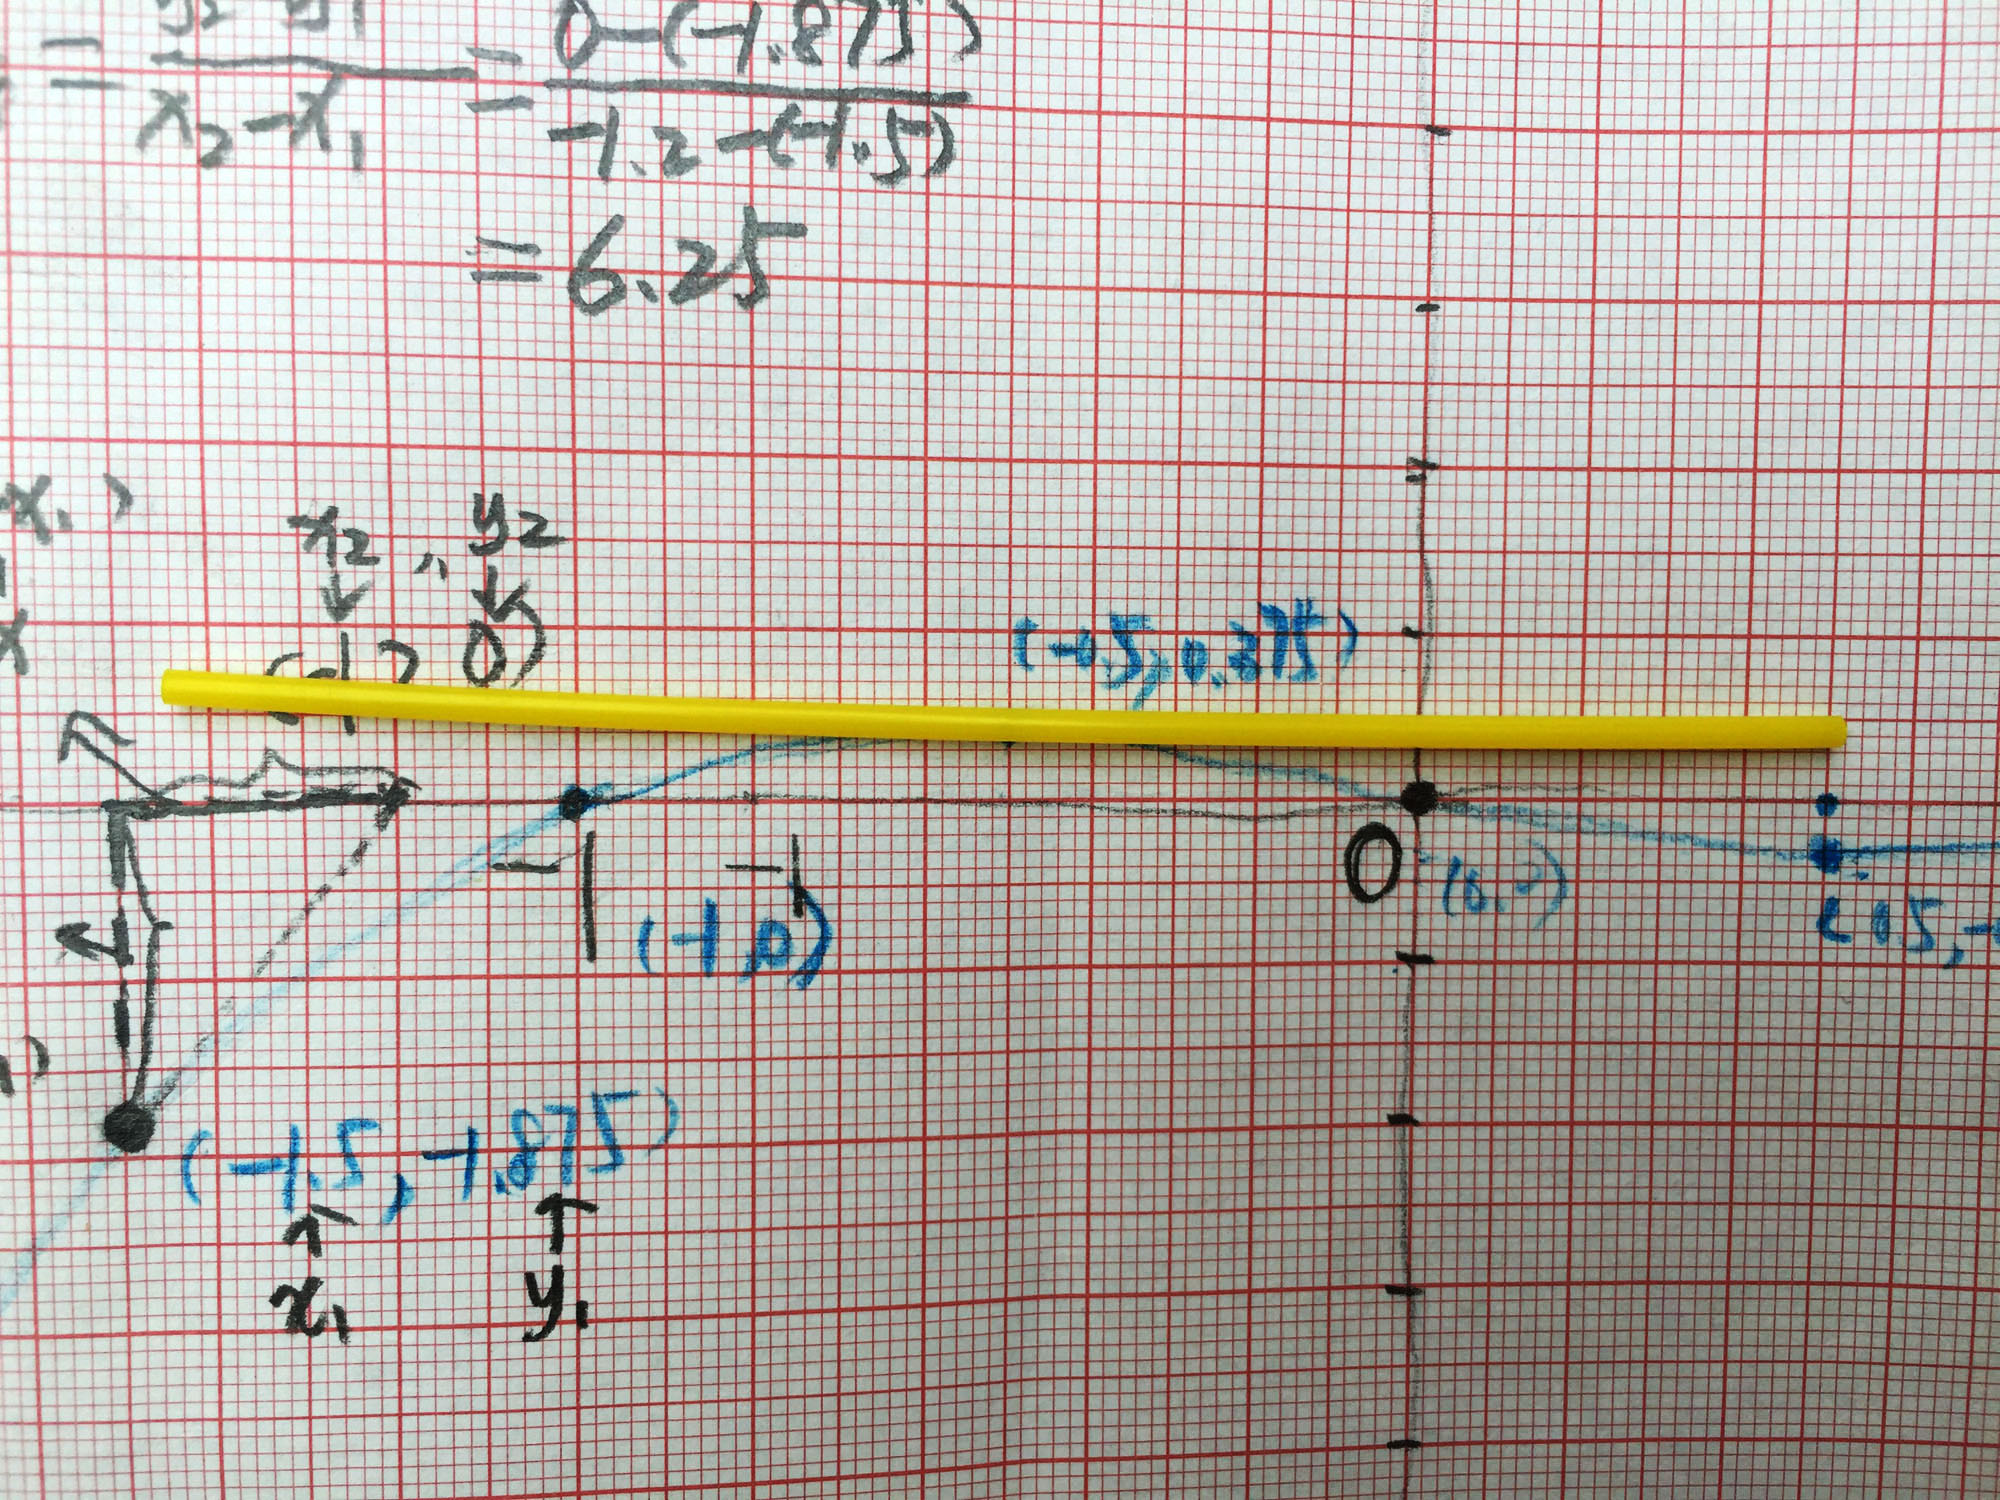 = y2-y1 / x2-x1 = 0-(-1.875) / -1.2-(-1.5)
= 6.25
x1)
x2, y2
x
(-1, 0)
(-0.5, 0.375)
-1 -1
0 (0.0)
(-1,0)
(0.5, -
)
(-1.5, -1.875)
x1 y1